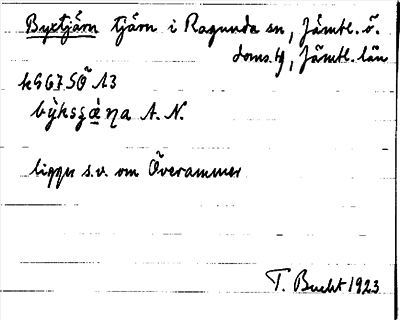 Byxtjärn tjärn i Ragunda sn, Jämtl. ö.
doms.q, Jämtl. län
k967SÖ A3
A. N.
ligger s.v. om Överammer
T. Bucht 1923